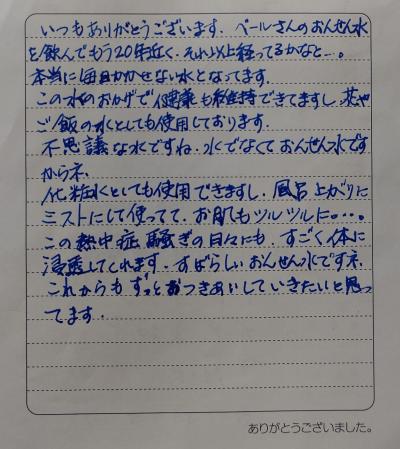 いつもありがとうございます。ベールさんのおんせん水
を飲んでもう20年近く、それ以上経ってるかなと…。
本当に毎日かかせない水となってます。
この水のおかげで健康も維持できてますし、花や
ご飯の水としても使用しております。
不思議な水ですね。水でなくておんせん水です
からネ。
化粧水としても使用できますし、風呂上がりに
ミストにして使ってて、お肌もツルツルに…。
この熱中症騒ぎの日々にも、すごく体に
浸透してくれます。すばらしいおんせん水ですネ。
これからもずっとおつきあいしていきたいと思っ
てます。
ありがとうございました。